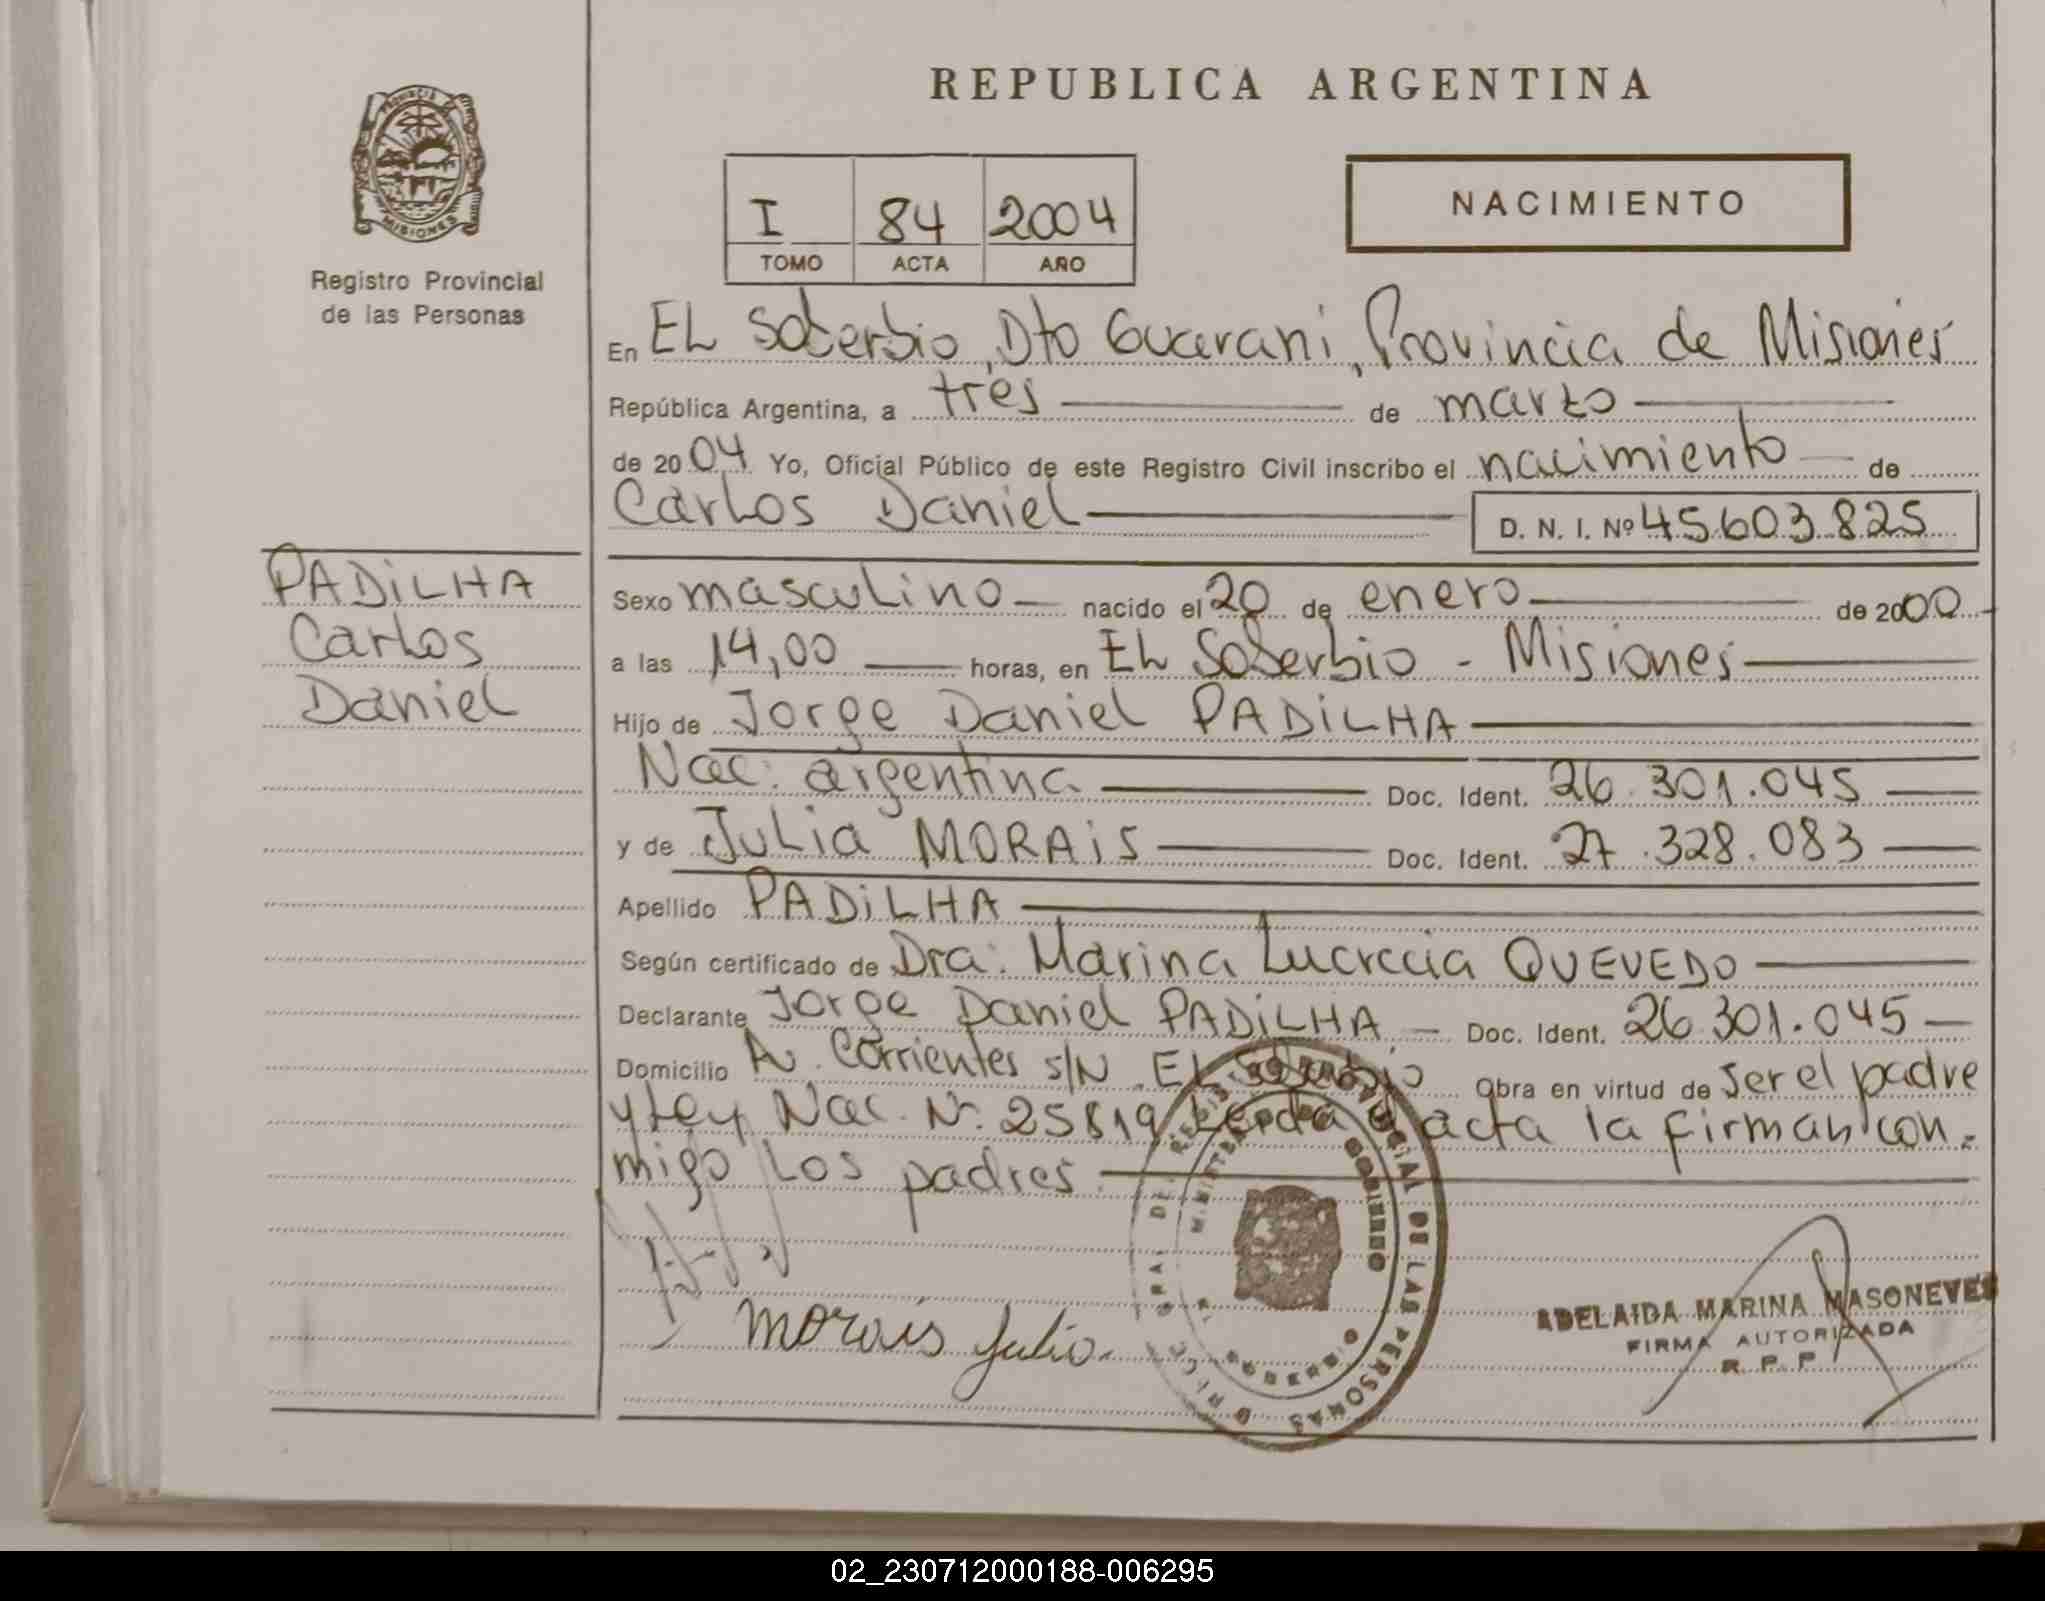 REPUBLICA ARGENTINA
PROVINCIA
MISIONES
Registro Provincial
de las Personas
I 84 2004
TOMO ACTA AÑO
NACIMIENTO
En EL Soberbio, Dto Guarani, Provincia de Misiones
República Argentina, a tres de marzo
de 2004 Yo, Oficial Público de este Registro Civil inscribo el nacimiento de
Carlos Daniel D. N. I. Nº 45.603.825
PADiLHA
Carlos
Daniel
Sexo masculino nacido el 20 de enero de 2000
a las 14,00 horas, en EL Soberbio - Misiones
Hijo de Jorge Daniel PADiLHA
Nac: argentina Doc. Ident. 26.301.045
y de Julia MORAiS Doc. Ident. 27.328.083
Apellido PADiLHA
Según certificado de Dra: Marina Lucrecia QUEVEDO
Declarante Jorge Daniel PADiLHA Doc. Ident. 26.301.045
Domicilio Av. Corrientes s/N. EL Soberbio Obra en virtud de ser el padre
y Ley Nac. Nº 25819 Leida el acta la firman con=
migo Los padres.
morais Julia.
DE LAS PERSONAS
SOBERBIO
ADELAIDA MARINA MASONEVES
FIRMA AUTORIZADA
R. P. P.
02_230712000188-006295